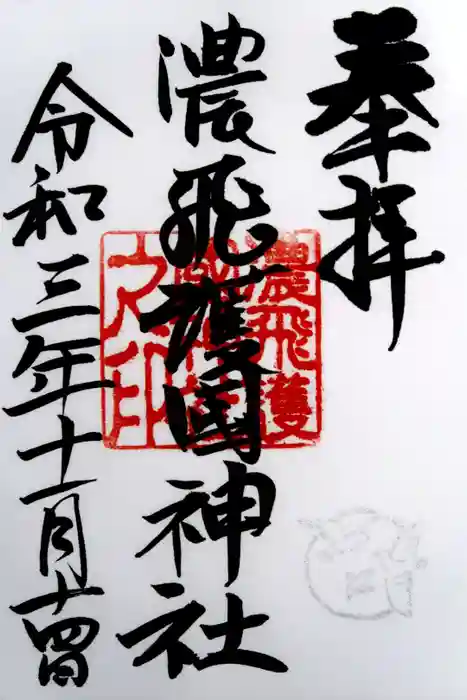 奉拝
濃飛護国神社
令和三年十一月十四日
濃飛護
国神社
之印